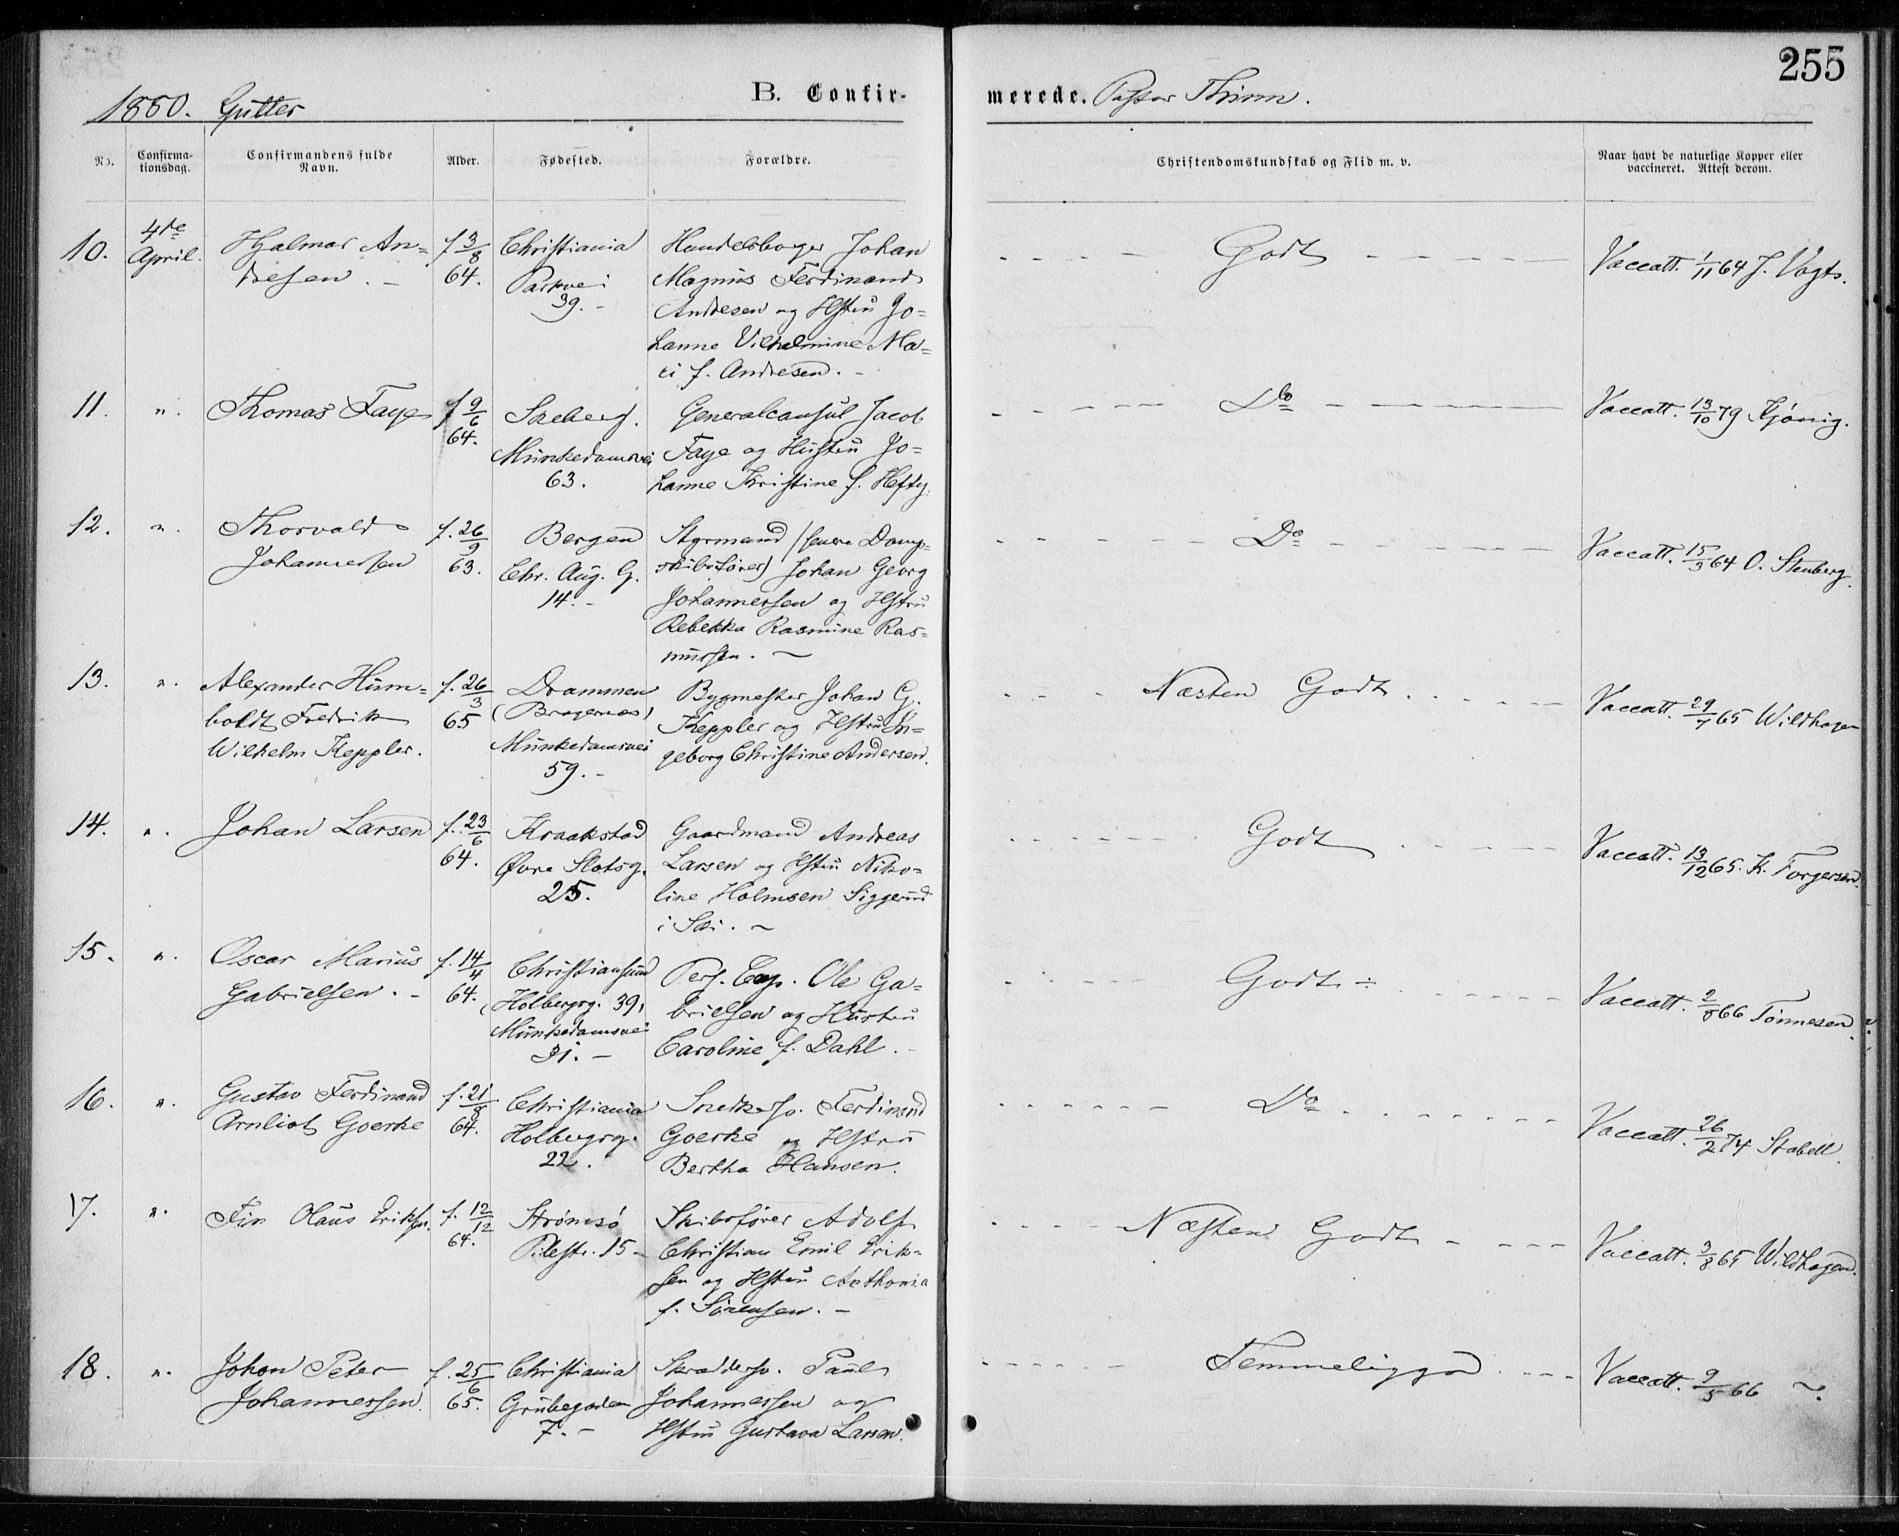 255
1880. Gutter
B. Confir-
merede. Pastor Thinn.
No.
Confirma-
tionsdag.
Confirmandens fulde
Navn.
Alder.
Fødested.
Forældre.
Christendomskundskab og Flid m. v.
Naar havt de naturlige Kopper eller
vaccineret. Attest derom.
10. 4de April. Hjalmar An=
dresen. -
f 3/8 64.
Christiania
Parkvei
39. -
Handelsborger Johan
Magnus Ferdinand
Andresen og Hstru Jo=
hanne Vilhelmine Ma=
ri f. Andresen. -
Godt
Vaccatt. 1/11 64 J. Vogts.
11. ". Thomas Faye
f 9/6 64.
Munkedamsvei
63.
Generalconsul Jacob
Faye og Hustru Jo=
hanne Kristine f. Hefty.
Do
Vaccatt. 13/10 79
12. ". Thorvald
Johannessen
f. 26/9 63.
Bergen
Chr. Aug. G.
14. -
Styrmand (senere Damp-
skibsfører) Johan Georg
Johannessen og Hstru
Rebekka Rasmine Ras=
mussen. -
Do
Vaccatt. 15/3 64 O. Stenberg.
13. ". Alexander Hum=
boldt Fredrik
Wilhelm Keppler.
f. 26/3 65
Drammen
(Bragernæs)
Munkedamsvei
59. -
Bygmester Johan G.
Keppler og Hstru In=
geborg Christine Andersen.
Næsten Godt
Vaccatt. 29/7 65 Wildhagen
14. ". Johan Larsen
f. 23/6 64.
Kraakstad
Øvre Slotsg.
25.
Gaardmand Andreas
Larsen og Hstru Niko=
line Holmsen Siggerud
i Ski. -
Godt
Vaccatt. 13/12 65. K. Torgersen.
15. ". Oscar Marius
Gabrielsen. -
f. 14/4 64.
Christiansund
Holbergsg. 39,
Munkedamsvei
31. -
Perf. Exp. Ole Ga=
brielsen og Hustru
Caroline f. Dahl. -
Godt ÷
Vaccatt. 2/8 66 Tønnesen.
16. ". Gustav Ferdinand
Arnliot Goerke
f. 21/8 64.
Christiania
Holbergsg.
22.
Snedkersv. Ferdinand
Goerke og Hstru
Bertha Hansen.
Do
Vaccatt. 26/2 74 Stabell.
17. ". Fin Olaus Eriksen.
f. 12/12 64.
Strømsø
Pilestr. 15 -
Skibsfører Adolf
Christian Emil Erik=
sen og Hstru Anthonia
f. Sørensen. -
Næsten Godt
Vaccatt. 3/8 65 Wildhagen.
18. ". Johan Peter
Johannessen.
f. 25/6 65.
Christiania
Grubegaden
7. -
Skræddersv. Paul
Johannessen og
Hstru Gustava Larsen.
Temmelig god
Vaccatt. 9/5 66